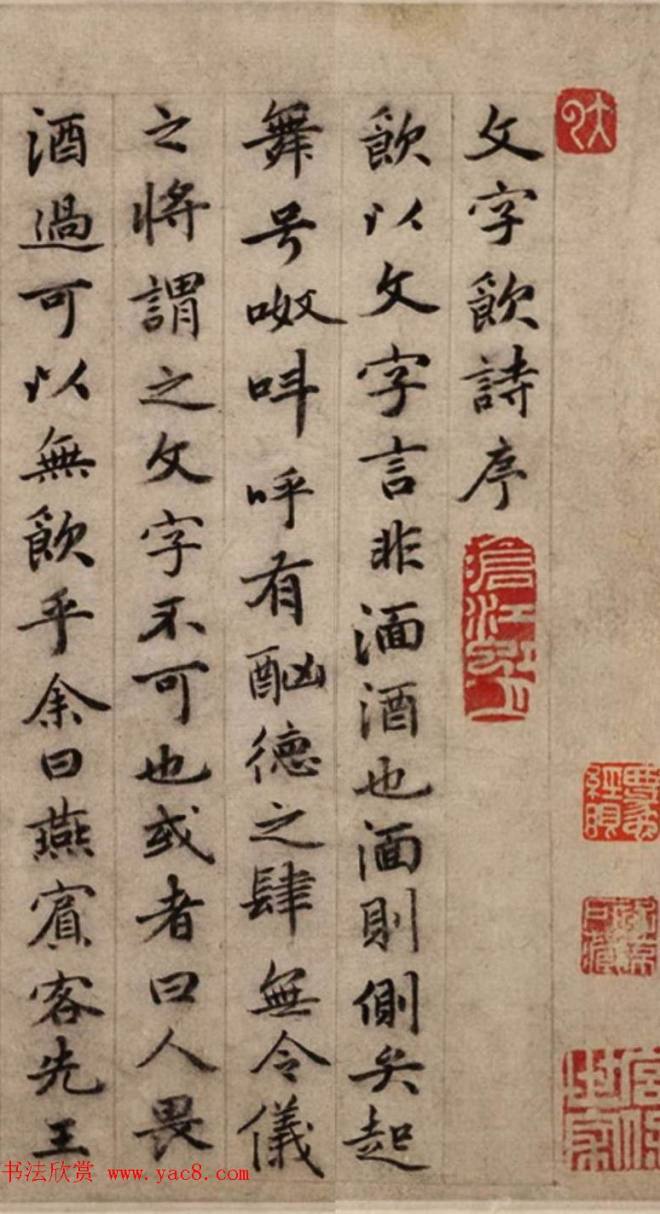 文字飲詩序
飲以文字言非湎酒也湎則側矣起
舞号呶呌呼有酗德之肆無令儀
之將謂之文字不可也或者曰人畏
酒過可以無飲乎余曰燕賓客先王
书法欣赏 www.yac8.com